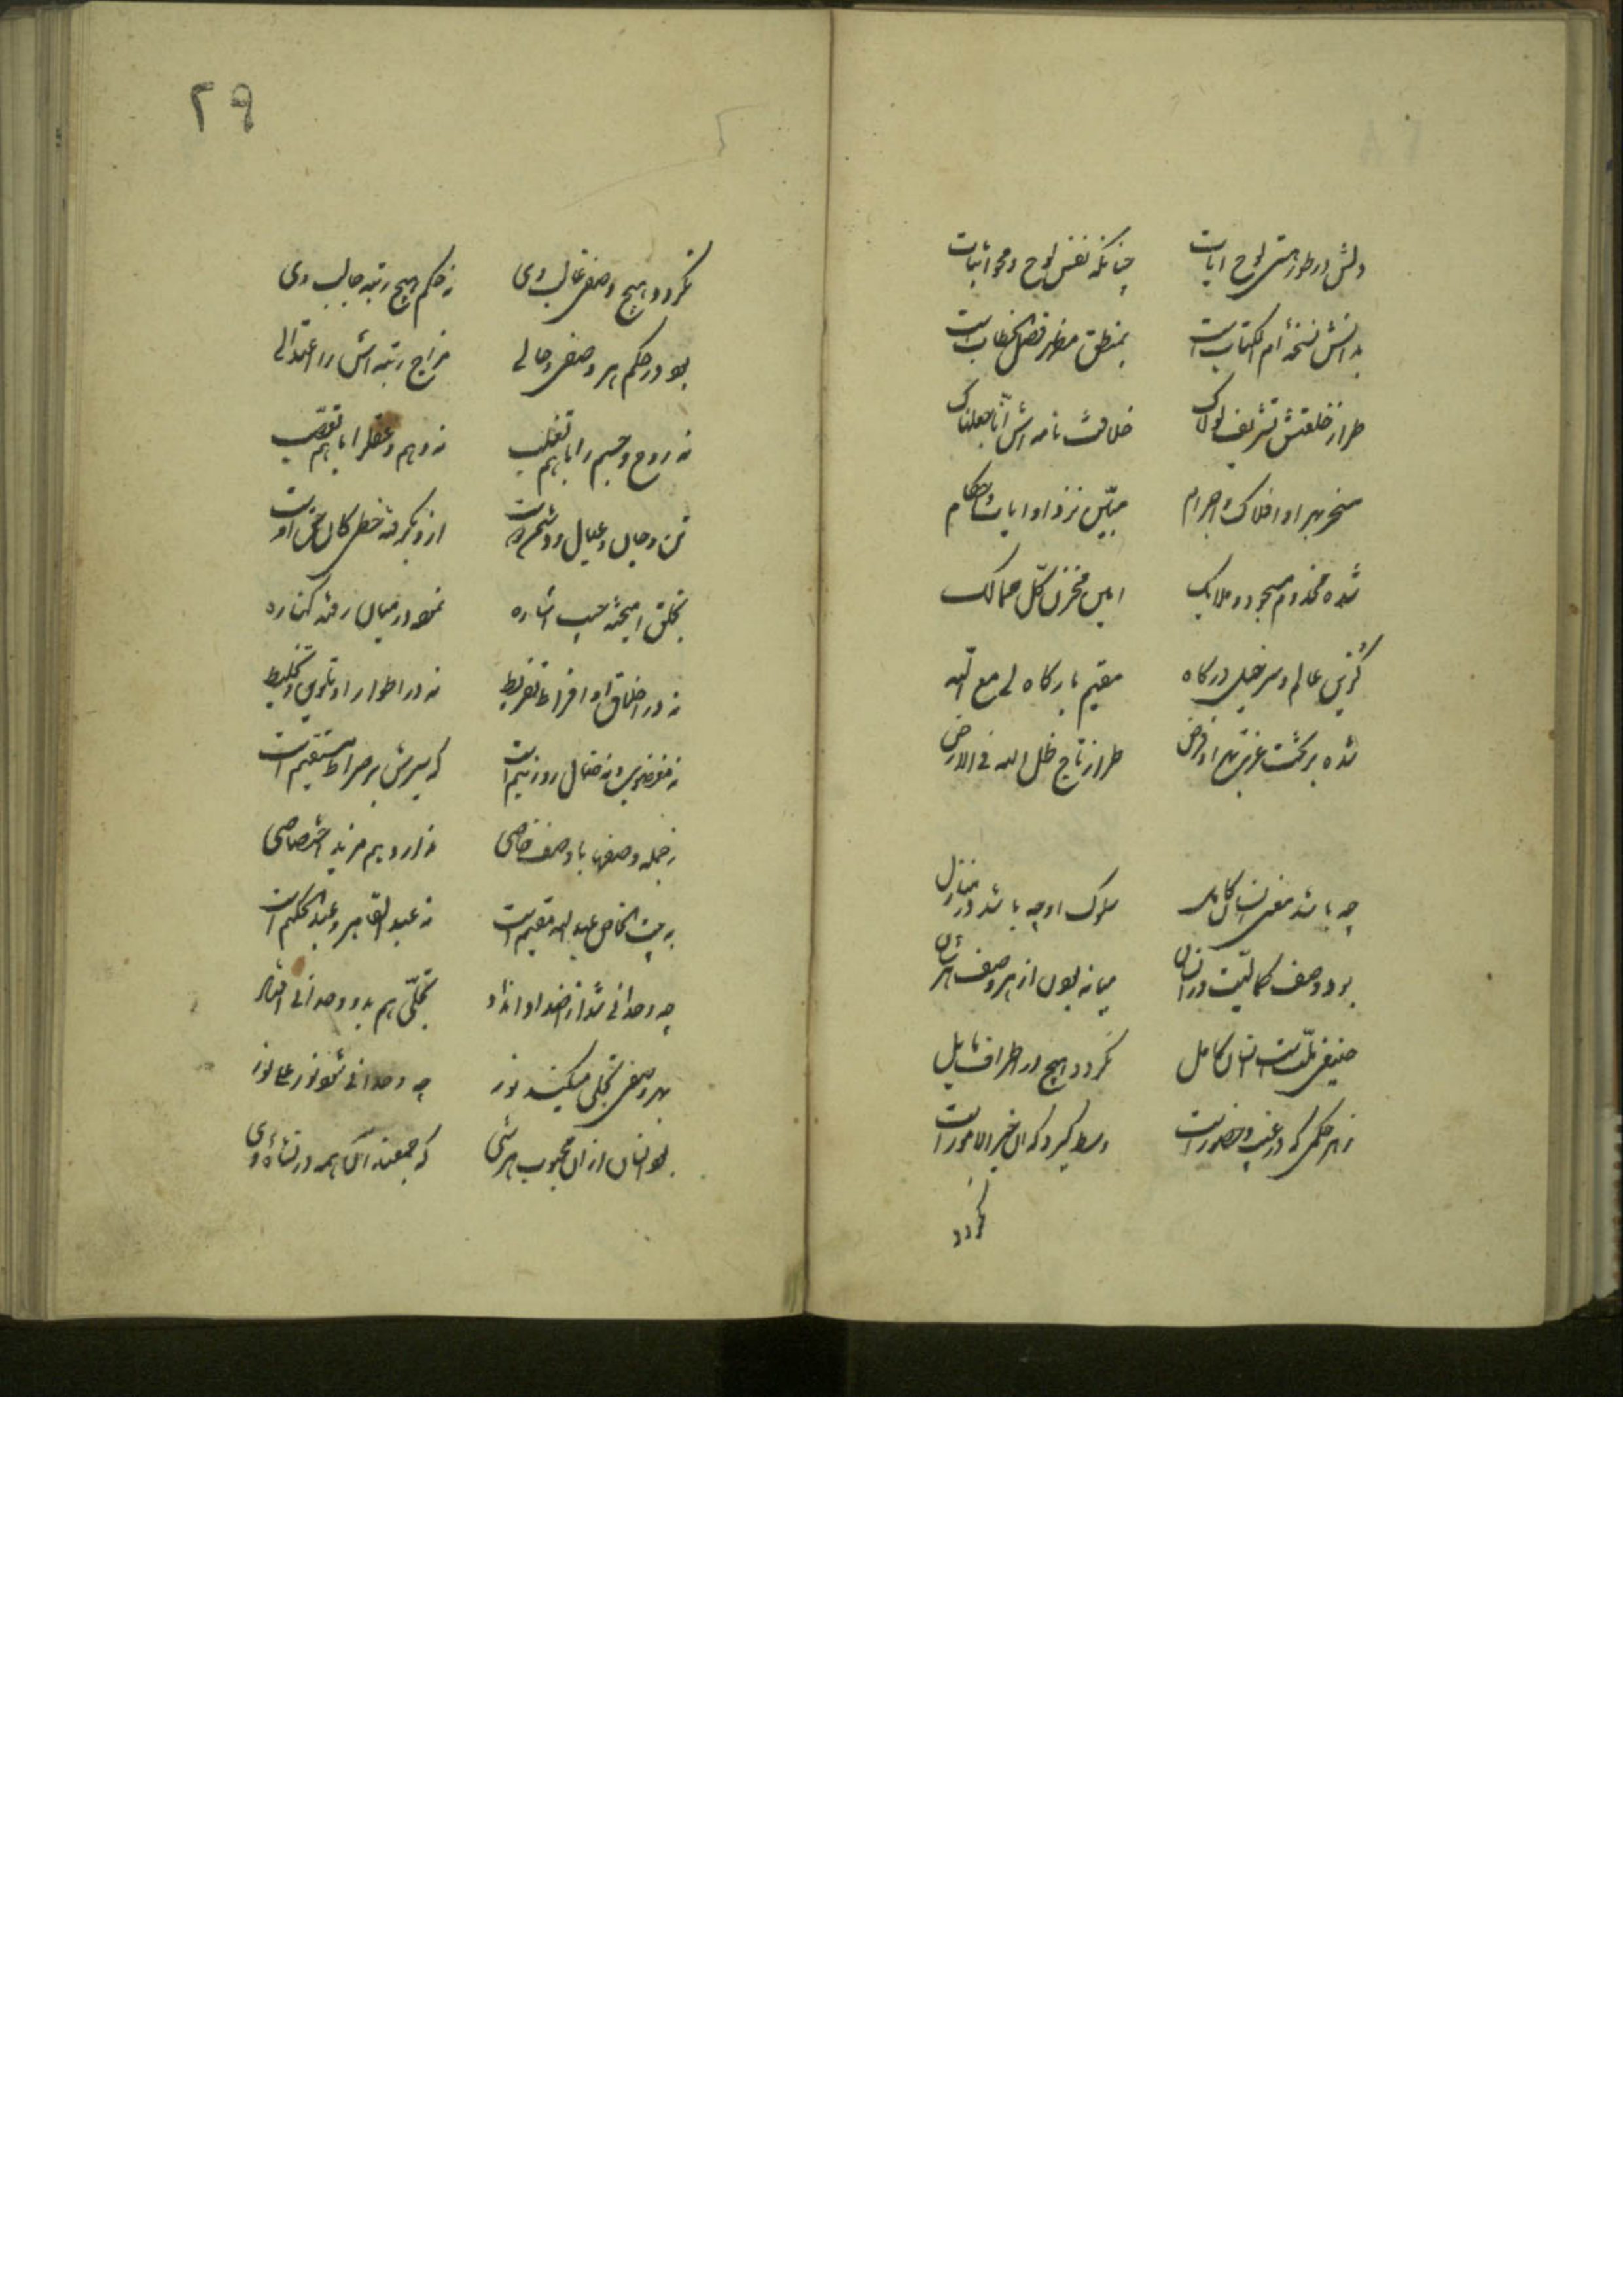 دلش در طور هستی لوح ایات چنانکه نفس لوح و محو اثبات
بدانش نسخه ام الکتاب است بمنطق مظهر فصل الخطاب است
طراز خلعتش تشریف لولاک خلافت نامه اش انا جعلناک
مسخر بهر او افلاک و اجرام مبیّن نزد او ایات و احکام
شده مخدوم و مسجود ملایک امین مخزن کلّ ممالک
گزین عالم و سرخیل درکاه مقیم بارکاه لی مع الله
شده بر تخت عزت بهر او فرض طراز تاج ظل الله فی الارض
چه باشد معنی انسان کامل سلوک او چه باشد در منازل
بود وصف کمالیّت در انسان میانه بودن از هر وصف هر شان
حنیفی ملّت است انسان کامل نکردد هیچ در اطراف مایل
ز هر حکمی که در غیب و حضور است وسط کیرد که ان خیر الامور است
نکردد
۲۹
نکردد هیچ وصفی غالب وی نه حکم هیچ رتبه جالب وی
بود در حکم هر وصفی و حالی مزاج رتبه اش را اعتدالی
نه روح و جسم را با هم تغلب نه وهم و عقل را با هم تعصّب
تن و جان و عیال و دوست ازو بکرفته حظی کان حق اوست
بخلق امیخته حسب اشاره نموده در میان رفته کناره
نه در اخلاق او افراط و تفریط نه در اطوار او تلوین و تخلیط
نه مغضوبی و نه ضال و رو نیم است که سیرش بر صراط مستقیم است
ز جمله وصفها با وصف خاصی ندارد هم مزید اختصاصی
به بیت الخاص عبد الله مقیم است نه عبد القاهر و عبد الحکیم است
چه وحدانی شد از اضداد و انداد تجلّی هم بدو وحدانی افتاد
بهر وصفی تجلی میکند نور چه وحدانی شود نور علی نور
بود انسان از ان محبوب هر شی که جمعند ان همه در نشاه وی